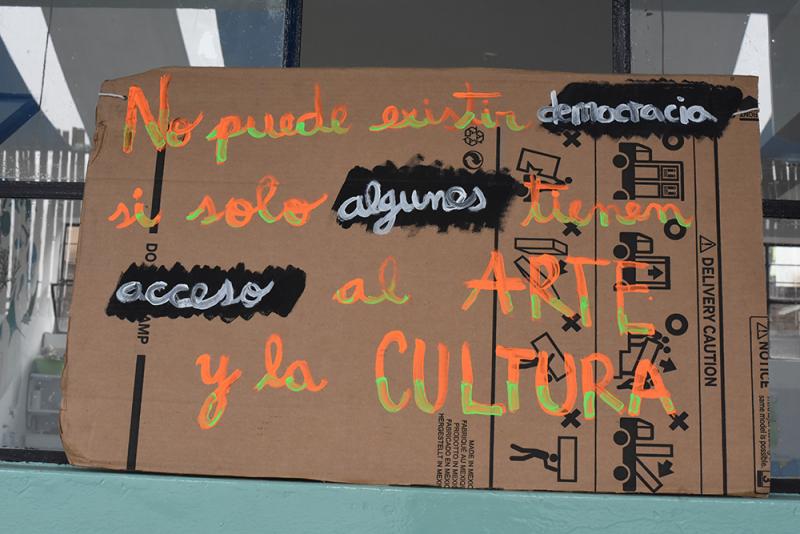 No puede existir democracia
si solo algunes tienen
acceso al ARTE
y la CULTURA
DELIVERY CAUTION
NOTICE
same model is possible.
MADE IN MEXICO
FABRIQUÉ AU MEXIQUE
PRODOTTO IN MESSICO
FABRICADO EN MÉXICO
HERGESTELLT IN MEXIKO